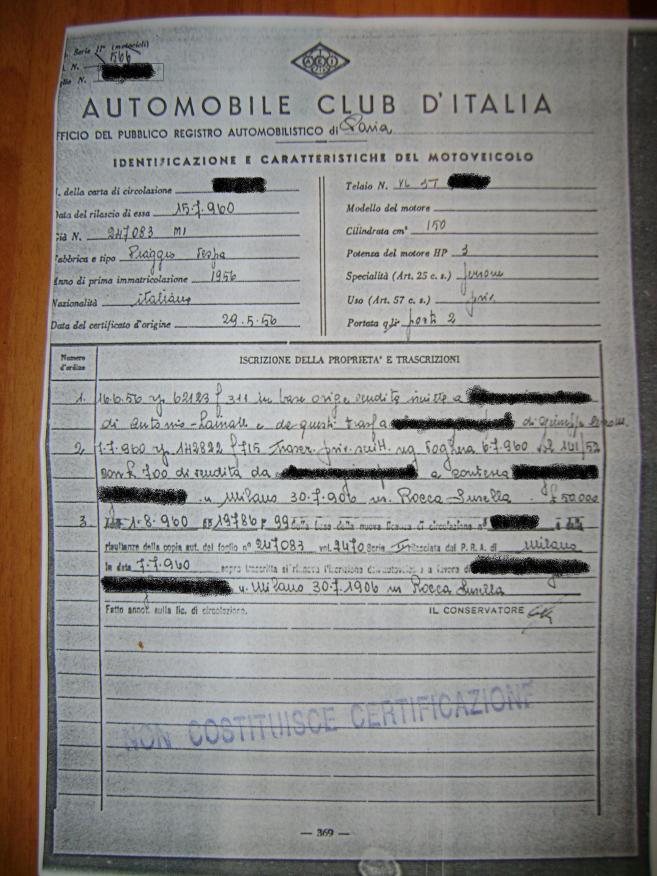 Serie IIª (motocicli)
566
N.
N.
A.C.I.
AUTOMOBILE CLUB D'ITALIA
FFICIO DEL PUBBLICO REGISTRO AUTOMOBILISTICO di Pavia
IDENTIFICAZIONE E CARATTERISTICHE DEL MOTOVEICOLO
. della carta di circolazione
Data del rilascio di essa 15.7.960
Già N. 247083 MI
Fabbrica e tipo Piaggio Vespa
Anno di prima immatricolazione 1956
Nazionalità italiana
Data del certificato d'origine 29.5.56
Telaio N. VL 3T
Modello del motore
Cilindrata cm³ 150
Potenza del motore HP 3
Specialità (Art. 25 c. s.) persone
Uso (Art. 57 c. s.) priv.
Portata q.li posti 2
Numero d'ordine
ISCRIZIONE DELLA PROPRIETA' E TRASCRIZIONI
1. 16.6.56 rp 62123 f 311 in base orig. vendita a
di Antonio - Lainate e da questi di Giuseppe
2. 7.7.960 rp 142822 f 715 priv. Voghera 6.7.960
700 di vendita da a
n. Milano 30.7.906 in Rocca Susella. £ 50.000
3. 1.8.960 19786 99 della nuova licenza di circolazione n°
risultanze della copia aut. del foglio n° 247083 vol. 2470 Serie II rilasciata dal P.R.A. di Milano
in data 7.7.960 sopra trascritta si rinnova l'iscrizione a favore di
n. Milano 30.7.1906 in Rocca Susella
Fatto annot. sulla lic. di circolazione. IL CONSERVATORE
NON COSTITUISCE CERTIFICAZIONE
— 369 —